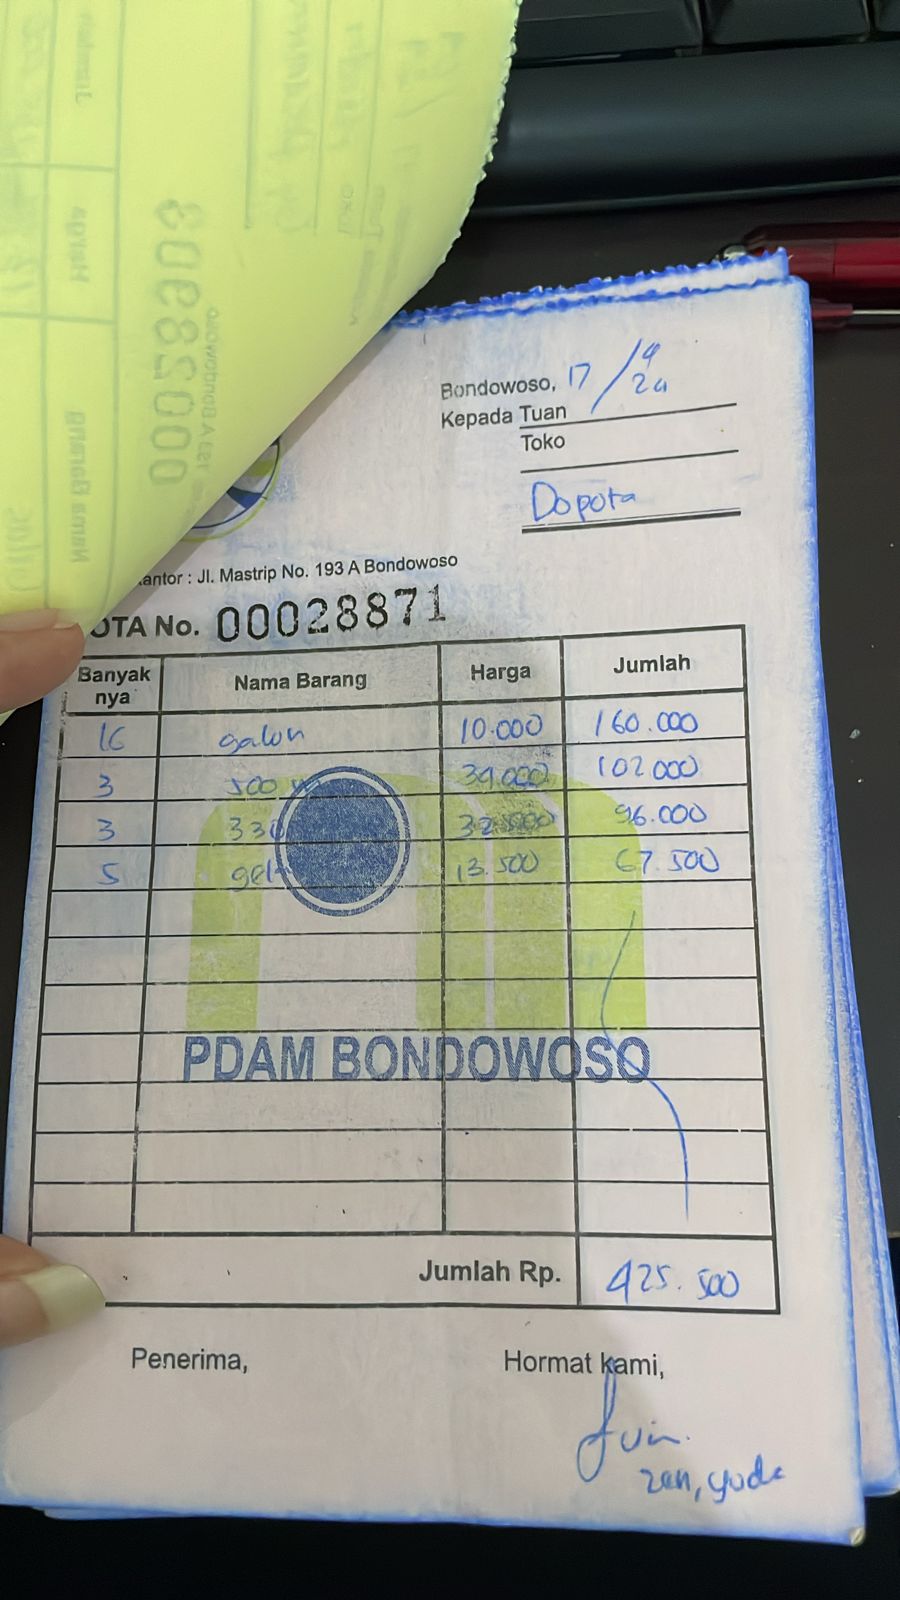 Bondowoso, 17/4
24
Kepada Tuan
Toko
Dopota
antor : Jl. Mastrip No. 193 A Bondowoso
OTA No. 00028871
Banyak nya Nama Barang Harga Jumlah
16 galon 10.000 160.000
3 500 34.000 102.000
3 330 32.000 96.000
5 gel 13.500 67.500
PDAM BONDOWOSO
Jumlah Rp. 425.500
Penerima, Hormat kami,
zen, yuda